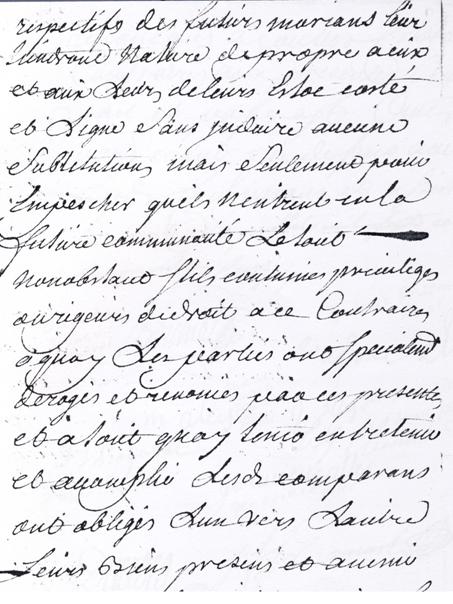 respectifs des futurs marians leur
tiendront nature de propre a eux
et aux leurs de leurs Estoc costé
et Ligne sans induire aucune
substitution mais seulement pour
Empescher quils nentrent en la
future communauté Le tout
nonobstant stils coutumes privileges
ou rigeurs de droit a ce Contraires
a quoy Les parties ont specialemt
derogés et renoncés par ces presentes
et a tout quoy tenir entretenir
et accomplir Lesds comparans
ont obligés Lun vers Lautre
Leurs Biens presens et avenir